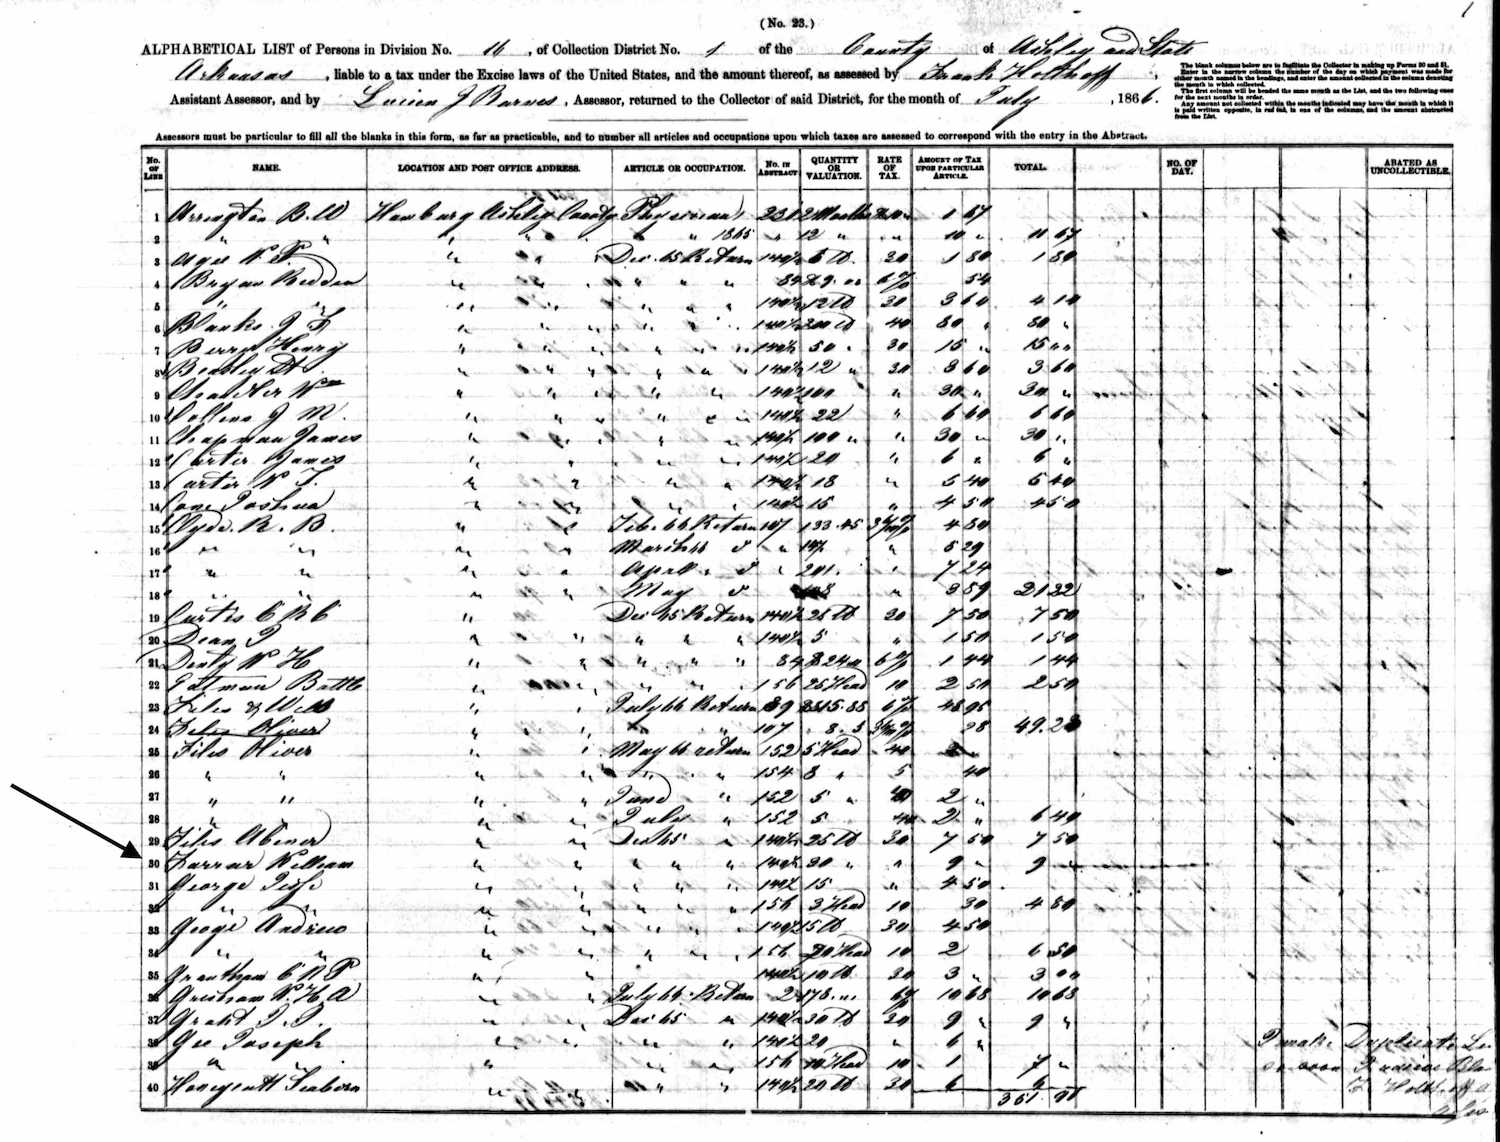 1
(No. 23.)
ALPHABETICAL LIST of Persons in Division No. 16, of Collection District No. 1 of the County of Ashley and State
Arkansas, liable to a tax under the Excise laws of the United States, and the amount thereof, as assessed by Frank Holthoff,
Assistant Assessor, and by Lucien J Barnes, Assessor, returned to the Collector of said District, for the month of July, 1866.
The blank columns below are to facilitate the Collector in making up Forms 20 and 51.
Enter in the narrow column the number of the day on which payment was made for
either month named in the headings, and enter the amount collected in the column denoting
the month in which collected.
The first column will be headed the same month as the List, and the two following ones
for the next months in order.
Any amount not collected within the months indicated may have the month in which it
is paid written opposite, in red ink, in one of the columns, and the amount abstracted
from the List.
Assessors must be particular to fill all the blanks in this form, as far as practicable, and to number all articles and occupations upon which taxes are assessed to correspond with the entry in the Abstract.
No. OF LINE NAME. LOCATION AND POST OFFICE ADDRESS. ARTICLE OR OCCUPATION. No. IN ABSTRACT QUANTITY OR VALUATION. RATE OF TAX. AMOUNT OF TAX UPON PARTICULAR ARTICLE. TOTAL. NO. OF DAY. ABATED AS UNCOLLECTIBLE.
1 Arrington B. W Hamburg Ashley County Physician 231 2 Months 10 1 67
2 " " " " " " 1865 " 12 " " 10 " 11 67
3 Agee N. P. " " Dec. 65 Return 140½ 6 lb. 30 1 80 1 80
4 Bryan Redden " " " " " 84 6% 54
5 " " " " " " " 140½ 12 lb 30 3 60 4 14
6 Blanks J F " " " " 140½ 200 lb 40 80 " 80 "
7 Berry Henry " " " " " 140½ 50 " 30 15 " 15 " "
8 " " " " " 140½ 12 " 30 3 60 3 60
9 Wm " " " " 140½ 100 " 30 " 30 "
10 Collins J M. " " " " " 140½ 22 " 6 60 6 60
11 Chapman James " " " " 140½ 100 " " 30 " 30 "
12 Carter James " " " " " 140½ 20 " 6 " 6 "
13 Carter N T. " " " " 140½ 18 " 5 40 5 40
14 Cone Joshua " " " " 140½ 15 " 4 50 4 50
15 Clyde R. B. " " Feb. 66 Return 107 133.45 4 80
16 " " " " March 66 " " 147 " 5 29
17 " " " " April " " " 201. " 7 24
18 " " " " May " " 3 59 21 22
19 Curtis C R C " Dec 65 Return 140½ 25 lb 30 7 50 7 50
20 Dean J " " " " " 140½ 5 " 1 50 1 50
21 Denty N H " " " " " 84 24 6% 1 44 1 44
22 Tatman Battle " " " " " 156 25 Head 10 2 50 2 50
23 Files & Wells " " July 66 Return 89 815.85 6% 48 95
24 Files Oliver " " " 107 8.5 28 49.23
25 Files Oliver " " May 66 return 152 5 Head 40 2
26 " " " " " " 154 8 " 5 40
27 " " " " June " 152 5 " 40 2 "
28 " " " July " 152 5 40 2 " 6 40
29 Files Abener " " Dec 65 " 140½ 25 lb 30 7 50 7 50
30 Farrar William " " " " " 140½ 30 " " 9 " 9 "
31 George Jesse " " " " " 140½ 15 " 4 50
32 " " " " " " " 156 3 Head 10 30 4 80
33 George Andrew " " " " " 140½ 15 lb 30 4 50
34 " " " " " " " 156 20 Head 10 2 6 50
35 Grantham C R P " " 140½ 10 lb 30 3 " 3 00
36 Gresham N. H A " " July 66 Return 2 178. 6% 10 68 10 68
37 Grant J. T. " " Dec 65 " 140½ 30 lb 30 9 " 9 "
38 Gee Joseph " " " " 140½ 20 " 6 "
39 " " " " " 156 10 Head 10 1 7 "
40 Honeycutt Seaborn " " " 140½ 20 lb 30 6 6
351.91
I make Duplicate
so soon I receive
F Holthoff